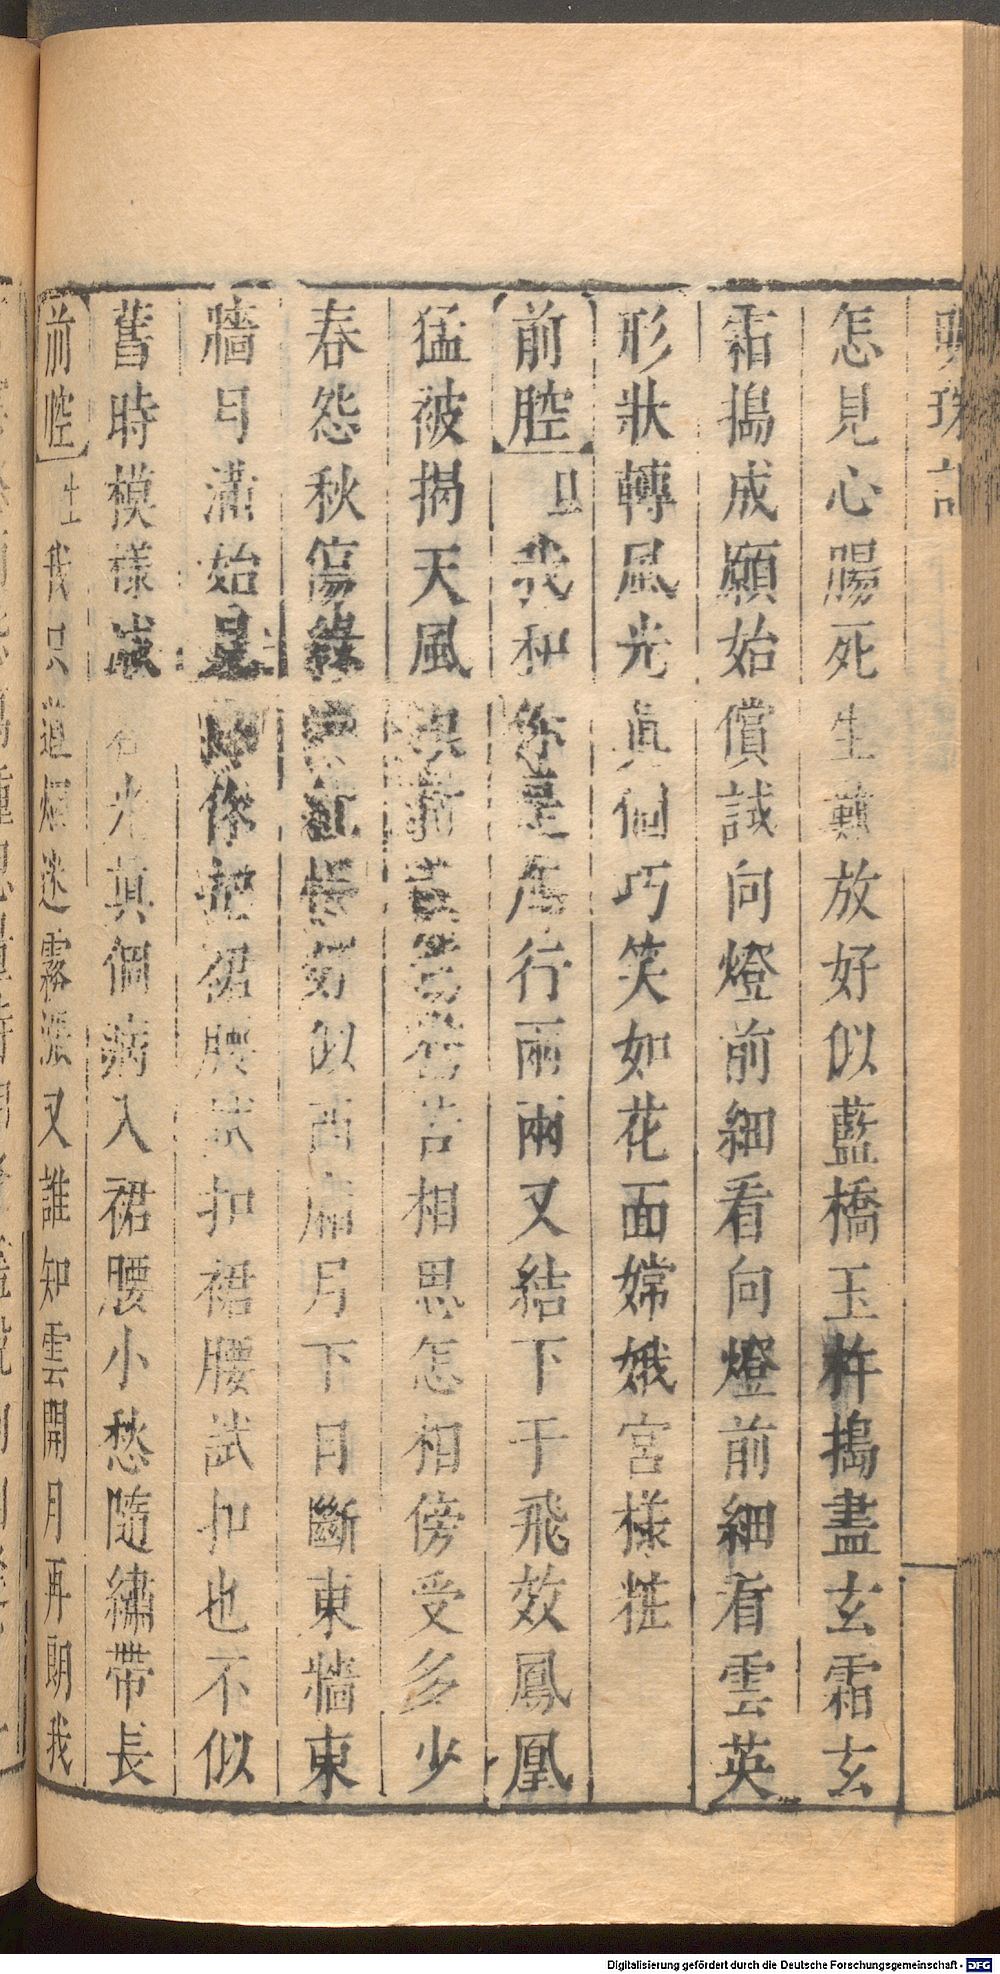 珠記
怎見心腸死生難放好似藍橋玉杵搗盡玄霜玄
霜搗成願始償試向燈前細看向燈前細看雲英
形狀轉風光眞個巧笑如花面嫦娥宮樣粧
前腔 旦 我和你是爲行雨兩又結下于飛效鳳凰
猛被揭天風 相思怎相傍受多少
春怨秋傷綠 紅 好似西廂月下目斷東牆東
牆月滿始是 你把裙腰試扣裙腰試扣也不似
舊時模樣減 光眞個病入裙腰小愁隨繡帶長
前腔 生 我只道烟迷霧漲又誰知雲開月再朗我
Digitalisierung gefördert durch die Deutsche Forschungsgemeinschaft - DFG